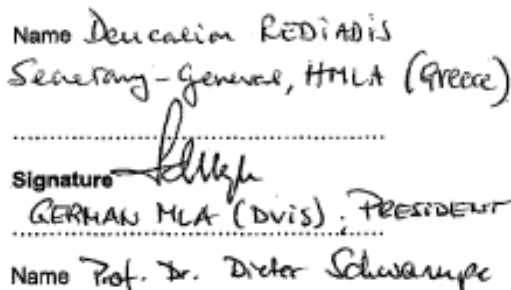 Name Deucalion REDiADiS
Secretary-General, HMLA (Greece)
Signature
GERMAN MLA (DViS), PRESIDENT
Name Prof. Dr. Dieter Schwampe